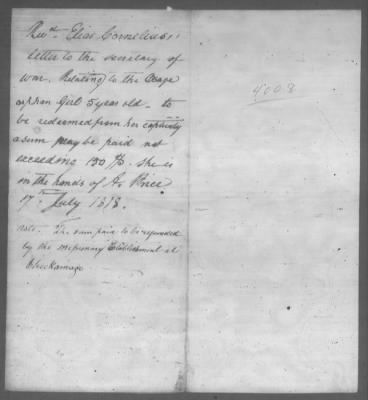 Revd. Elias Cornelius's
letter to the secretary of
war. Relating to the Osage
orphan Girl 5 years old - to
be redeemed from her captivity
a sum may be paid not
exceeding 130 $. She is
in the hands of
17. July 1818.
Note. The sum paid to be refunded
by the missionary Establishment at
Chickamaga
4008